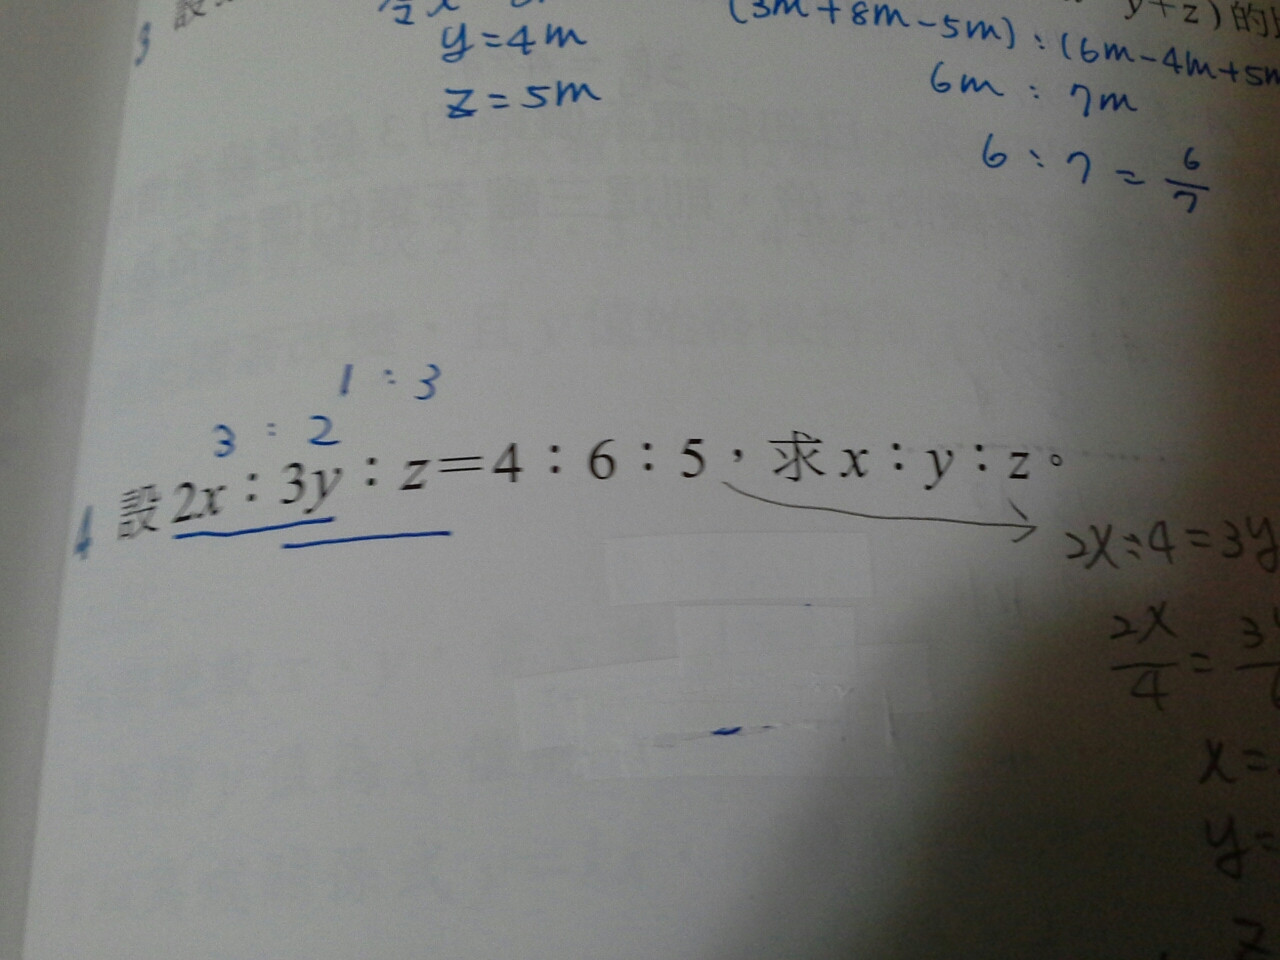 3 設
y=4m
z=5m
y+z)的
(3m+8m-5m):(6m-4m+5m
6m : 7m
6:7=6/7
1:3
3:2
4 設2x:3y:z=4:6:5,求x:y:z。
2x÷4=3y
2x/4=
x=
y=
z